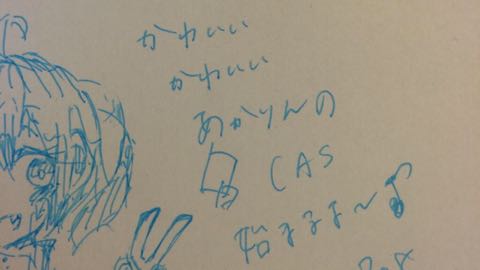 かわいい
かわいい
あかりんの
CAS
始まるよ〜♪